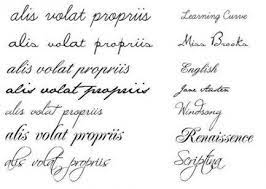 alis volat propriis Learning Curve
alis volat propriis Miss Brooks
alis volat propriis English
alis volat propriis Jane Austen
alis volat propriis Windsong
alis volat propriis Renaissance
alis volat propriis Scriptina